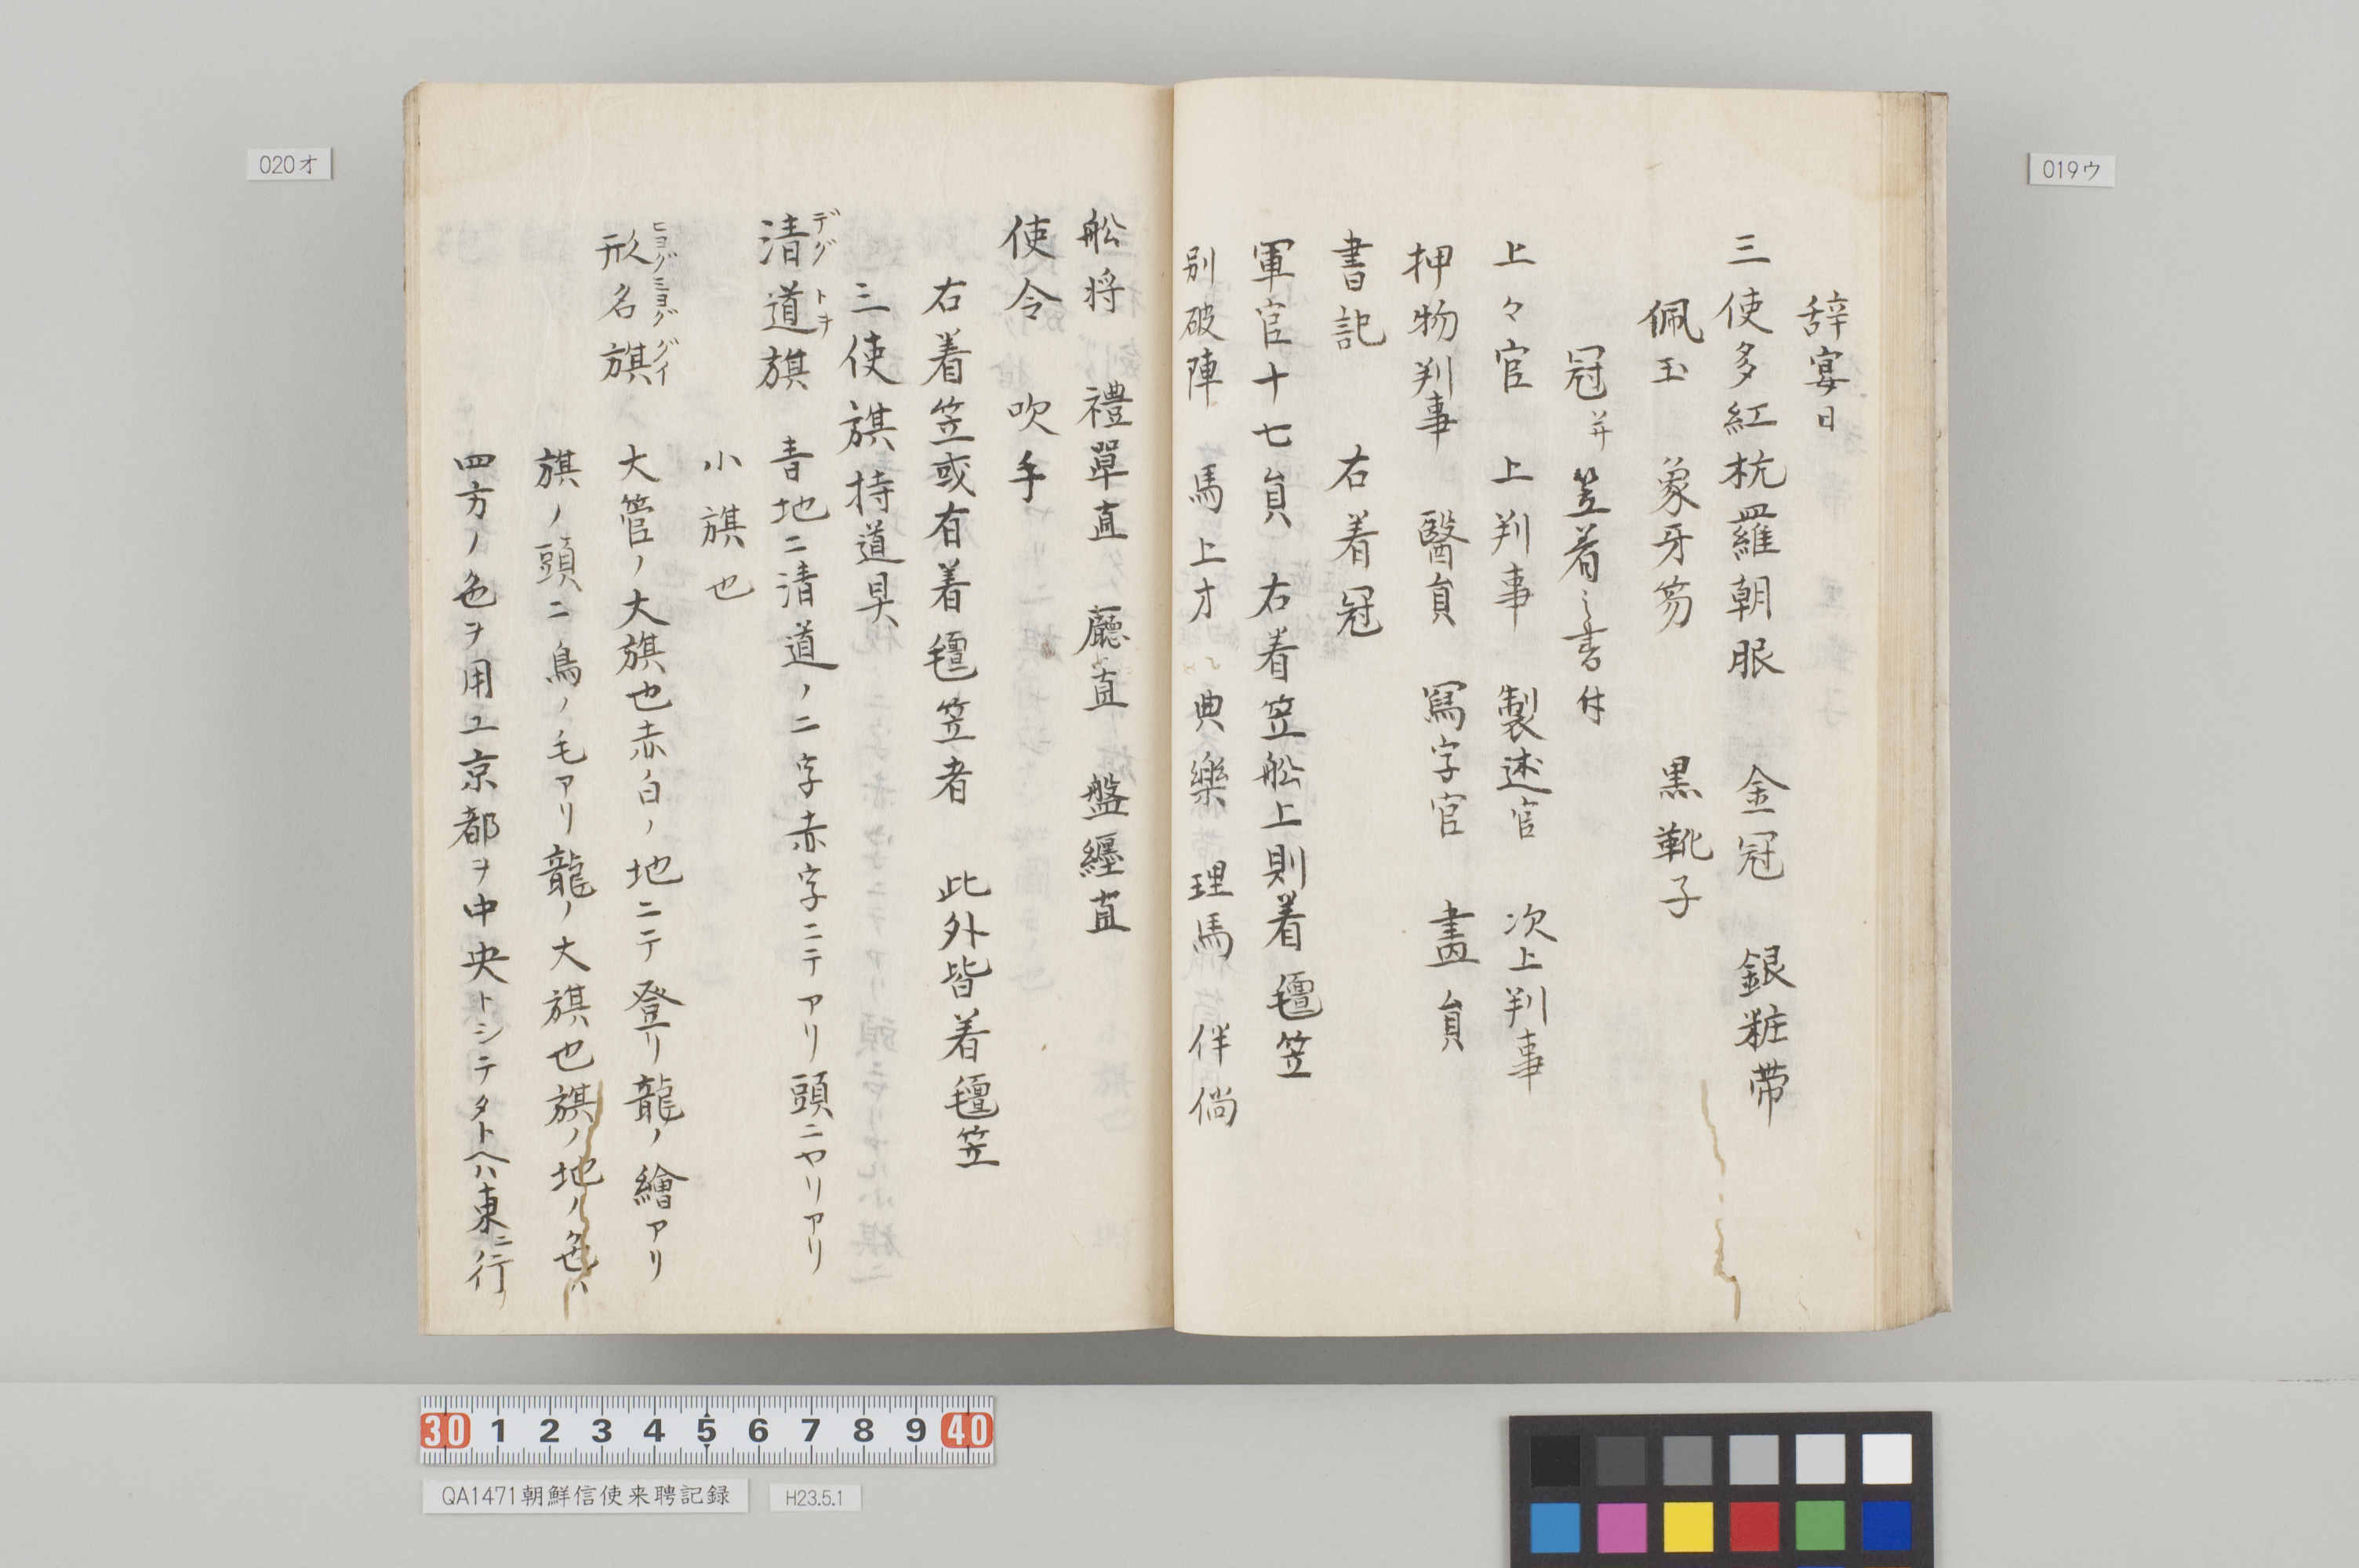 019ウ
辞宴日
三使多紅杭羅朝服　金冠　銀粧帯
佩玉　象牙笏　黒靴子
冠并笠着之書付
上々官　上判事　製述官　次上判事
押物判事　醫貟　寫字官　畫貟
書記　右着冠
軍官十七貟　右着笠舩上則着氊笠
別破陣　馬上才　典樂　理馬　伴倘
020オ
舩将　禮單直　廳直　盤纏直
使令　吹手
右着笠或有着氊笠者　此外皆着氊笠
三使旗持道具
清道旗　青地ニ清道ノ二字赤字ニテアリ頭ニヤリアリ
デグ　トヲ
小旗也
形名旗　大管ノ大旗也赤白ノ地ニテ登リ龍ノ繪アリ
ヒヨグミヨググイ
旗ノ頭ニ鳥ノ毛アリ龍ノ大旗也旗ノ地ノ色ハ
四方ノ色ヲ用ユ京都ヲ中央トシテタトヘハ東ニ行
30 1 2 3 4 5 6 7 8 9 40
QA1471朝鮮信使来聘記録
H23.5.1